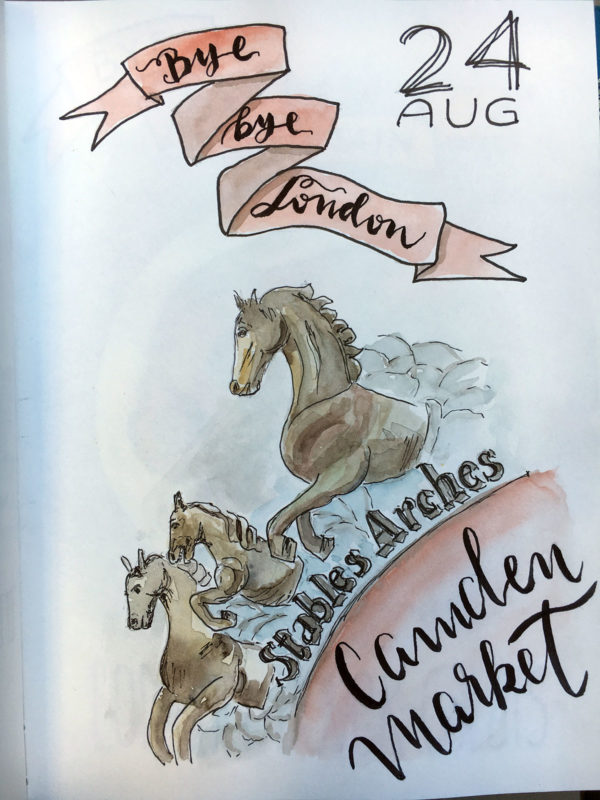 Bye
bye
London
24
AUG
Stables Arches
Camden
Market